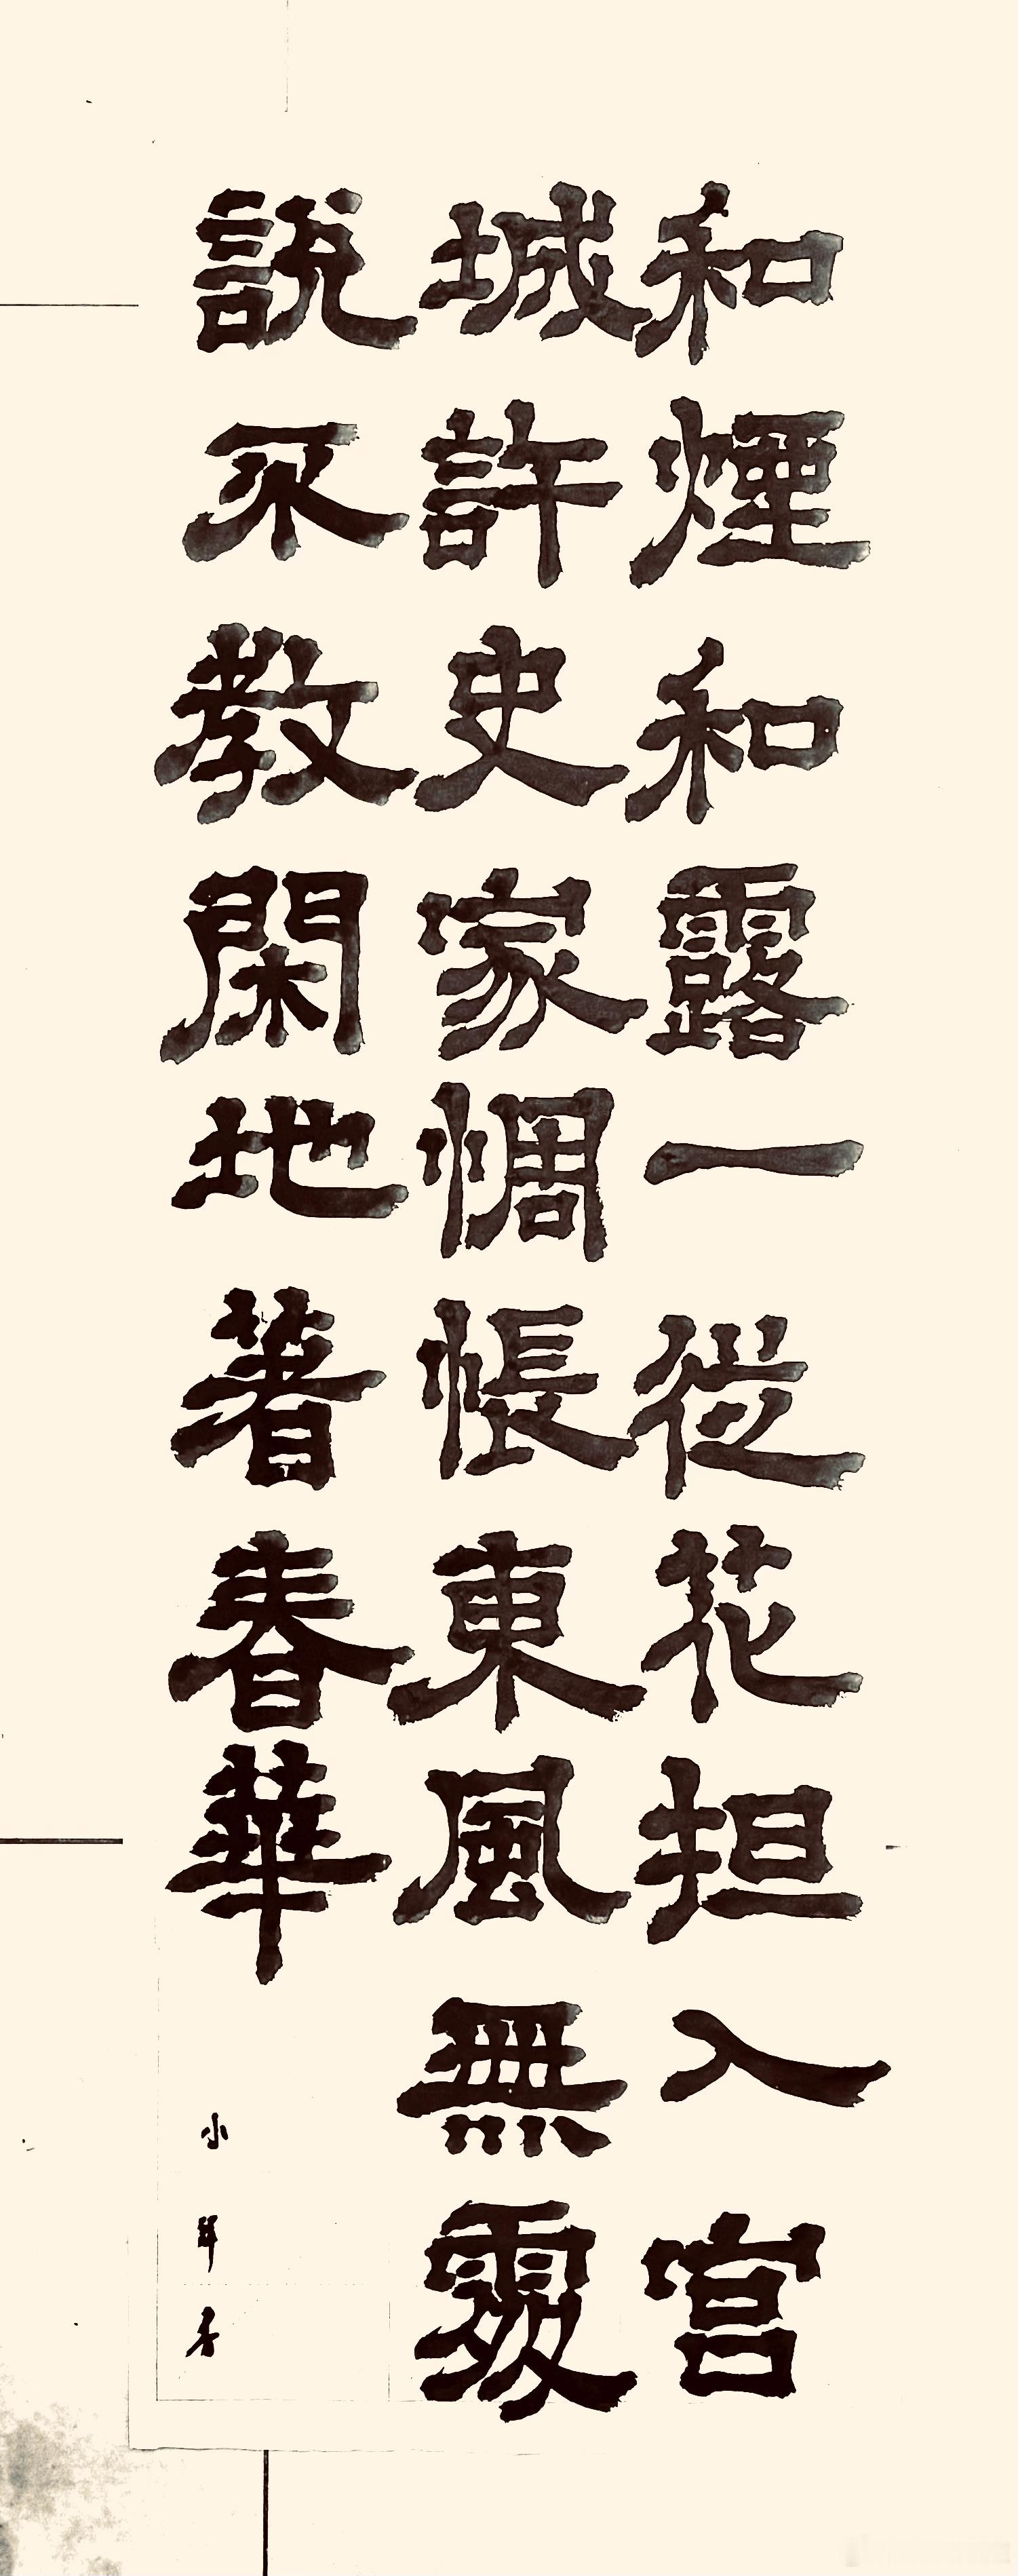 和煙和露一從花担入宮
城許史家惆悵東風無處
說不教閑地著春華
小